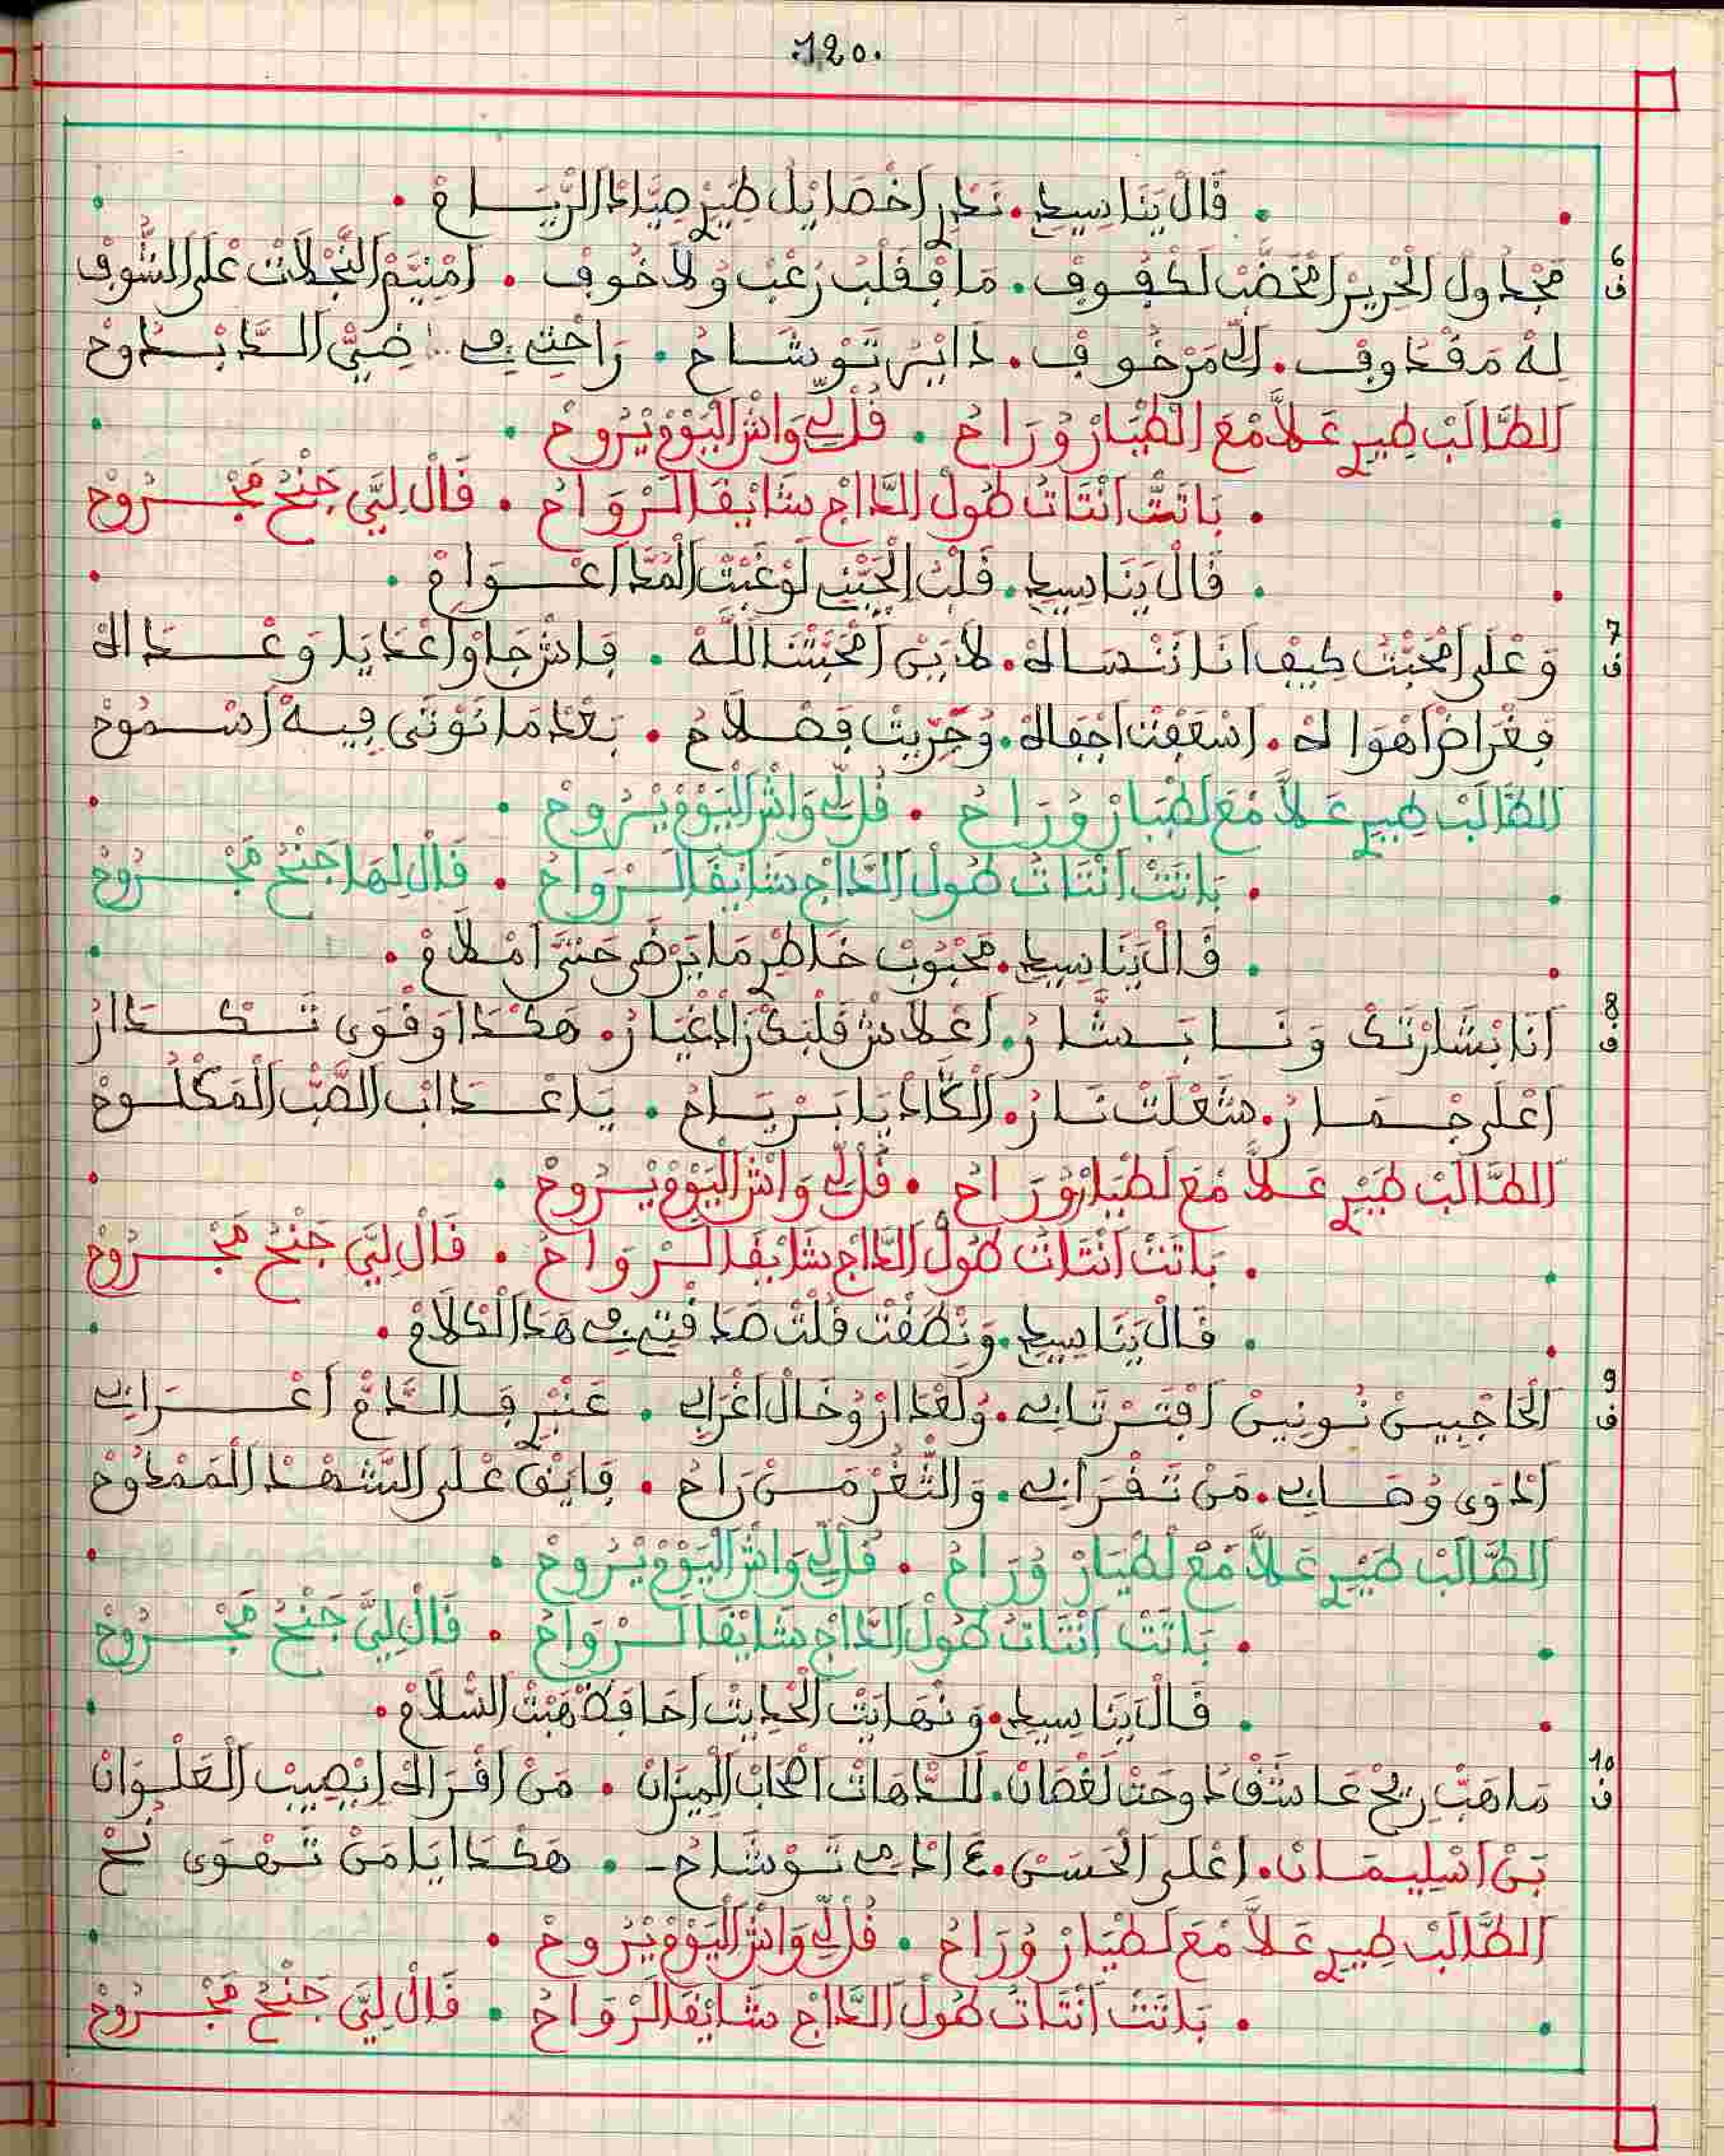 120.
فَالْ يَنَا سِيدِ. نَكَر اَخْصَايْلْ طِيرْ صِيَّادْ الرْيَـــامْ .
6 ف مَجْدُولْ الْحْرِيرْ اَمْخَضَّبْ لَكْفُوفْ. مَا فْقَلْبُ رُعْبْ وُلَا خُوفْ . اَمْنِيَّمْ النَّجْلَاتْ عْلَى الشُّوفْ
لِهْ مَقْدُوفْ. لَمْرْخُوفْ. دَايْرْ تَوْشَـاحْ . رَاحْتِي فِي ضِيّْ الــدَّابْــدُوحْ
الطَّالَبْ طِيرِ عَلَّا مْعَ الطْيَارْ وُرَاحْ . قُلِّي وَاشْ الْيَوْمْ يْرُوحْ .
. بَاتَتْ اَنْتَاتُ طُولْ الدَّاجْ شَايْقَا الـرْوَاحُ . قَالْ لِيَّ جَنْحُ مَجْـــرُوحْ
. فَالْ يَنَا سِيدِ. قَلْبْ الْحْبِيبْ لَوْ غَبْتْ الْمَدَّا اَعْـــوَامْ .
7 ف وَعْلَى اَمْحَبْتُ كِيفْ اَنَا نَنْسَاهْ. لَايَنْ اَمْحَبْتْنَا لله . فَاشْ جَا وْاَعْدَايَا وَعْـــدَاهْ
فغْرَاضْ اَهْوَاهْ. اَسْعَفْتْ اَجْفَاهْ. وُجَرِّيتْ فصْلَاحُ . بَعْدْ مَا نَوْتَى فِيهْ اَسْـمُوحْ
الطَّالَبْ طِيرِ عَلَّا مْعَ لَطْيَارْ وُرَاحْ . قُلِّي وَاشْ الْيَوْمْ يْرُوحْ .
. بَاتَتْ اَنْتَاتُ طُولْ الدَّاجْ شَايْقَا الـرْوَاحُ . قَالْ لهَا جَنْحُ مَجْـــرُوحْ
. فَالْ يَنَا سِيدِ. مَحْبُوبْ خَاطْرِ مَا يَرْضَى حَتَّى اَمْلَامْ .
8 ف اَنَا بْشَارْتَكْ وَنَــا بَـشَّارْ. اَعْلَاشْ قَلْبَكْ زَادْ غْيَارْ. هَكْدَا وَقْوَى تَـــكْـــدَارْ
اَعْلَى جْــمَــارْ. شَعْلَتْ نَــارْ. الْكَادْ يَا بَـرْيَـاحْ . يَا عْــدَابْ الصَّبْ الْمَكْلُــوحْ
الطَّالَبْ طِيرِ عَلَّا مْعَ لَطْيَارْ وُرَاحْ . قُلِّي وَاشْ الْيَوْمْ يْرُوحْ .
. بَاتَتْ اَنْتَاتُ طُولْ الدَّاجْ شَايْقَا الـرْوَاحُ . قَالْ لِيَّ جَنْحُ مَجْـــرُوحْ
. فَالْ يَنَا سِيدِ. وَنْطَقْتْ قُلْتْ صَدَّقْتِ فِي هَدَ الْكْلَامْ .
9 ف الْحَاجْبِينْ نُونِينْ اَقْتَـرْنَابِي. وُلَعْدَارْ وُخَالْ اَغْرَابِي . عَنْبْرِ فَــالــدَّامْ اَغْـــرَابِي
اَدْوَى وُهَــابِي. مَنْ تَـفْرَابِي. وَالثَّغْرْ مَــنْ رَاحْ . فَايْقْ عْلَى الشَّهْـدْ الْمَمْدُوحْ
الطَّالَبْ طِيرِ عَلَّا مْعَ لَطْيَارْ وُرَاحْ . قُلِّي وَاشْ الْيَوْمْ يْرُوحْ .
. بَاتَتْ اَنْتَاتُ طُولْ الدَّاجْ شَايْقَا الـرْوَاحُ . قَالْ لِيَّ جَنْحُ مَجْـــرُوحْ
. فَالْ يَنَا سِيدِ. وَنْهَايْتْ الْحْدِيتْ اَحَافَظْ هَبْتْ السّْلَامْ .
10 ف مَا هَبّْ رِيحْ عَاشَقْ دُوحَتْ لَغْصَانْ. لَلــدَّاهَاتْ اَصْحَابْ الْمِيزَانْ . مَنْ اَقْرَاكْ اِيْصِيبْ الْعَلْـوَانْ
بَنْ اسْلِيـمَــانْ. اَعْلَى الْحَسَنْ. عَادْ فِي تَـوْشَاحْ . هَكْدَا يَا مَنْ تَـهْوَى نُحْ
الطَّالَبْ طِيرِ عَلَّا مْعَ لَطْيَارْ وُرَاحْ . قُلِّي وَاشْ الْيَوْمْ يْرُوحْ .
. بَاتَتْ اَنْتَاتُ طُولْ الدَّاجْ شَايْقَا الـرْوَاحُ . قَالْ لِيَّ جَنْحُ مَجْـــرُوحْ